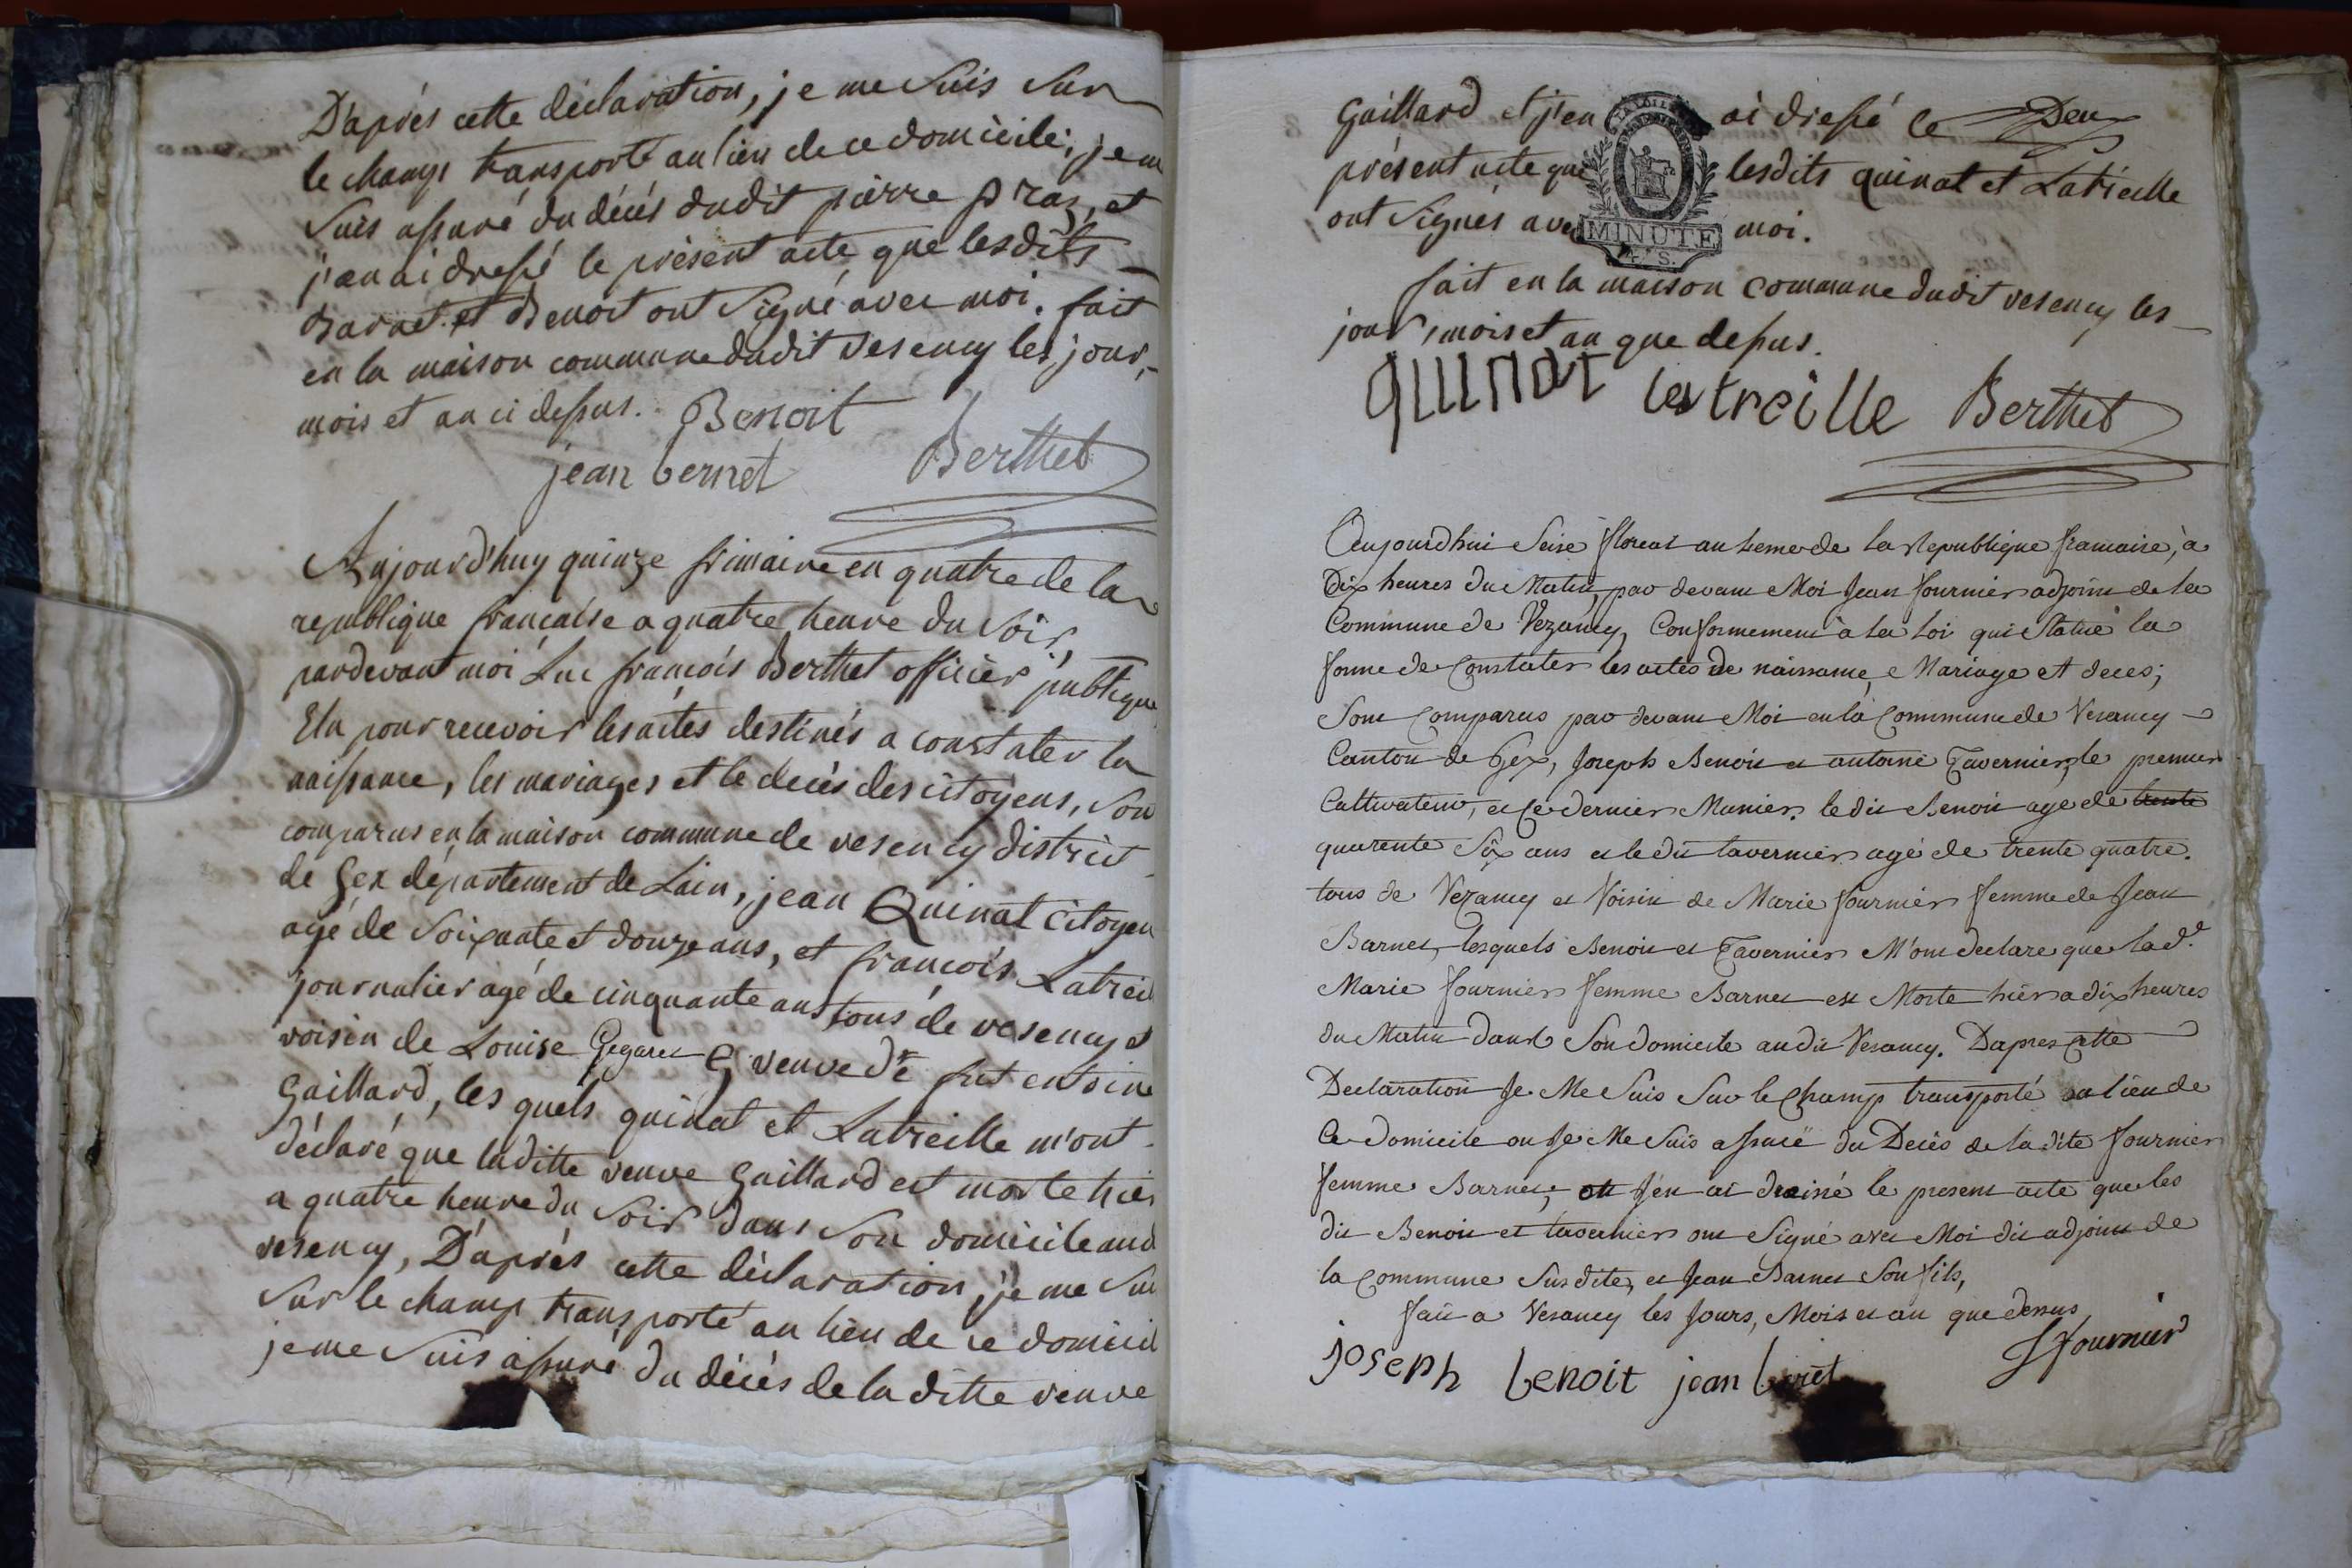 D'aprés cette déclaration, je me Suis Sur
le champ transporté au lieu de ce domicile; je m
Suis assuré du décés dudit pierre praz, et
j'en ai dressé le présent acte que lesdits
Barnet et Benoit ont Signé avec moi. fait
en la maison commune dudit vesency les jour,
mois et an ci dessus. Benoit
jean bernet Berthet
Aujourd'huy quinze frimaire en quatre de la
republique francaise a quatre heure du Soir,
pardevant moi Luc francois Berthet officier publique
Elu pour recevoir les actes destinés a constater la
naissance, les mariages et le decés des citoyens, Son
comparus en la maison commune de vesency district
de Gex département de Lain, jean Quinat citoyen
agé de Soixante et douze ans, et francois Latreil
journalier agé de cinquante ans tous de vesency et
voisin de Louise Gegaret veuve de fut
Gaillard, les quels quinat et Latreille m'ont
déclaré que laditte veuve Gaillard est morte hier
a quatre heure du Soir dans Son domicile aud
vesency, D'aprés cette déclaration, je me Sui
Sur le champ transporté au lieu de ce domicil
je me Suis assuré du décés de la ditte veuve
Gaillard et j'en ai dressé le Deux
présent acte que lesdits quinat et Latreille
ont Signés avec moi.
LA LOI
MINUTE
S.
fait en la maison commune dudit vesency les
jour, mois et an que dessus.
quinat latreille Berthet
Aujourdhui Seise floreal an 4eme de la Republique francaise, à
Dix heures du Matin, par devant Moi Jean fournier adjoint de la
Commune de Vezancy, Conformement à la Loi qui Statue la
forme de Constater les actes de naissance, Mariage et deces;
Sont Comparus par devant Moi en la Commune de Vesancy
Canton de Gex, Joseph Benoit et antoine Tavernier, le premier
Cultivateur, et Ce dernier Munier. le dit Benoit agé de trente
quarente Six ans et le dit tavernier agé de trente quatre.
tous de Vezancy et Voisin de Marie fournier femme de Jean
Barnet, lesquels Benoit et Tavernier M'ont declare que la de.
Marie fournier femme Barnet est Morte hier a dix heures
du Matin dans Son domicile au dit Vesancy. Dapres Cette
Declaration Je Me Suis Sur le Champ transporté au lieu de
Ce domicile ou Je Me Suis assuré du Decés de la dite fournier
femme Barnet; J'en ai dréssé le present acte que les
dit Benoit et tavernier ont Signé avec Moi dit adjoint de
la Commune Susdite, et Jean Barnet Son fils,
fait a Vesancy les Jours, Mois et an que dessus
joseph benoit jean bernet JFournier